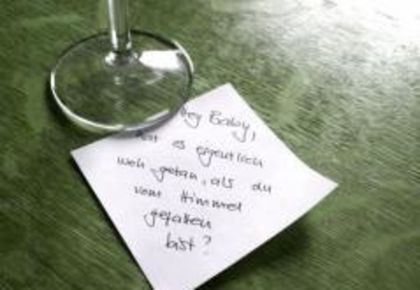 Hey Baby,
hat es eigentlich
weh getan, als du
vom Himmel
gefallen
bist?